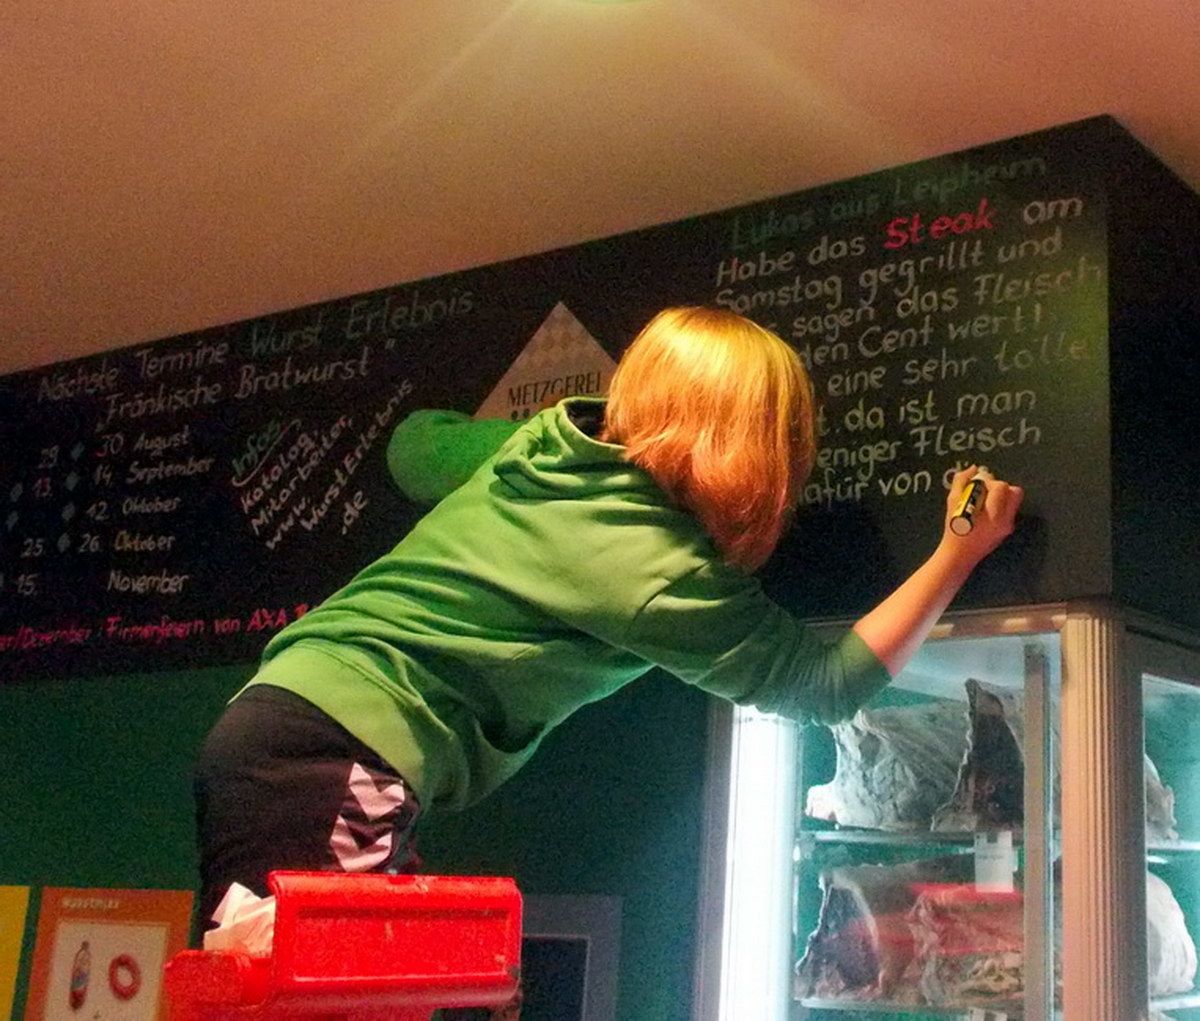 Nächste Termine Wurst Erlebnis
"Fränkische Bratwurst"
29. 30 August
13. 14. September
12. Oktober
25. 26. Oktober
15. November
Dezember: Firmenfeiern von AXA
Infos
Katalog,
Mitarbeiter,
www.
WurstErlebnis
.de
METZGEREI
Lukas aus Leipheim
Habe das Steak am
Samstag gegrillt und
sagen das Fleisch
den Cent wert!
eine sehr tolle
da ist man
weniger Fleisch
dafür von